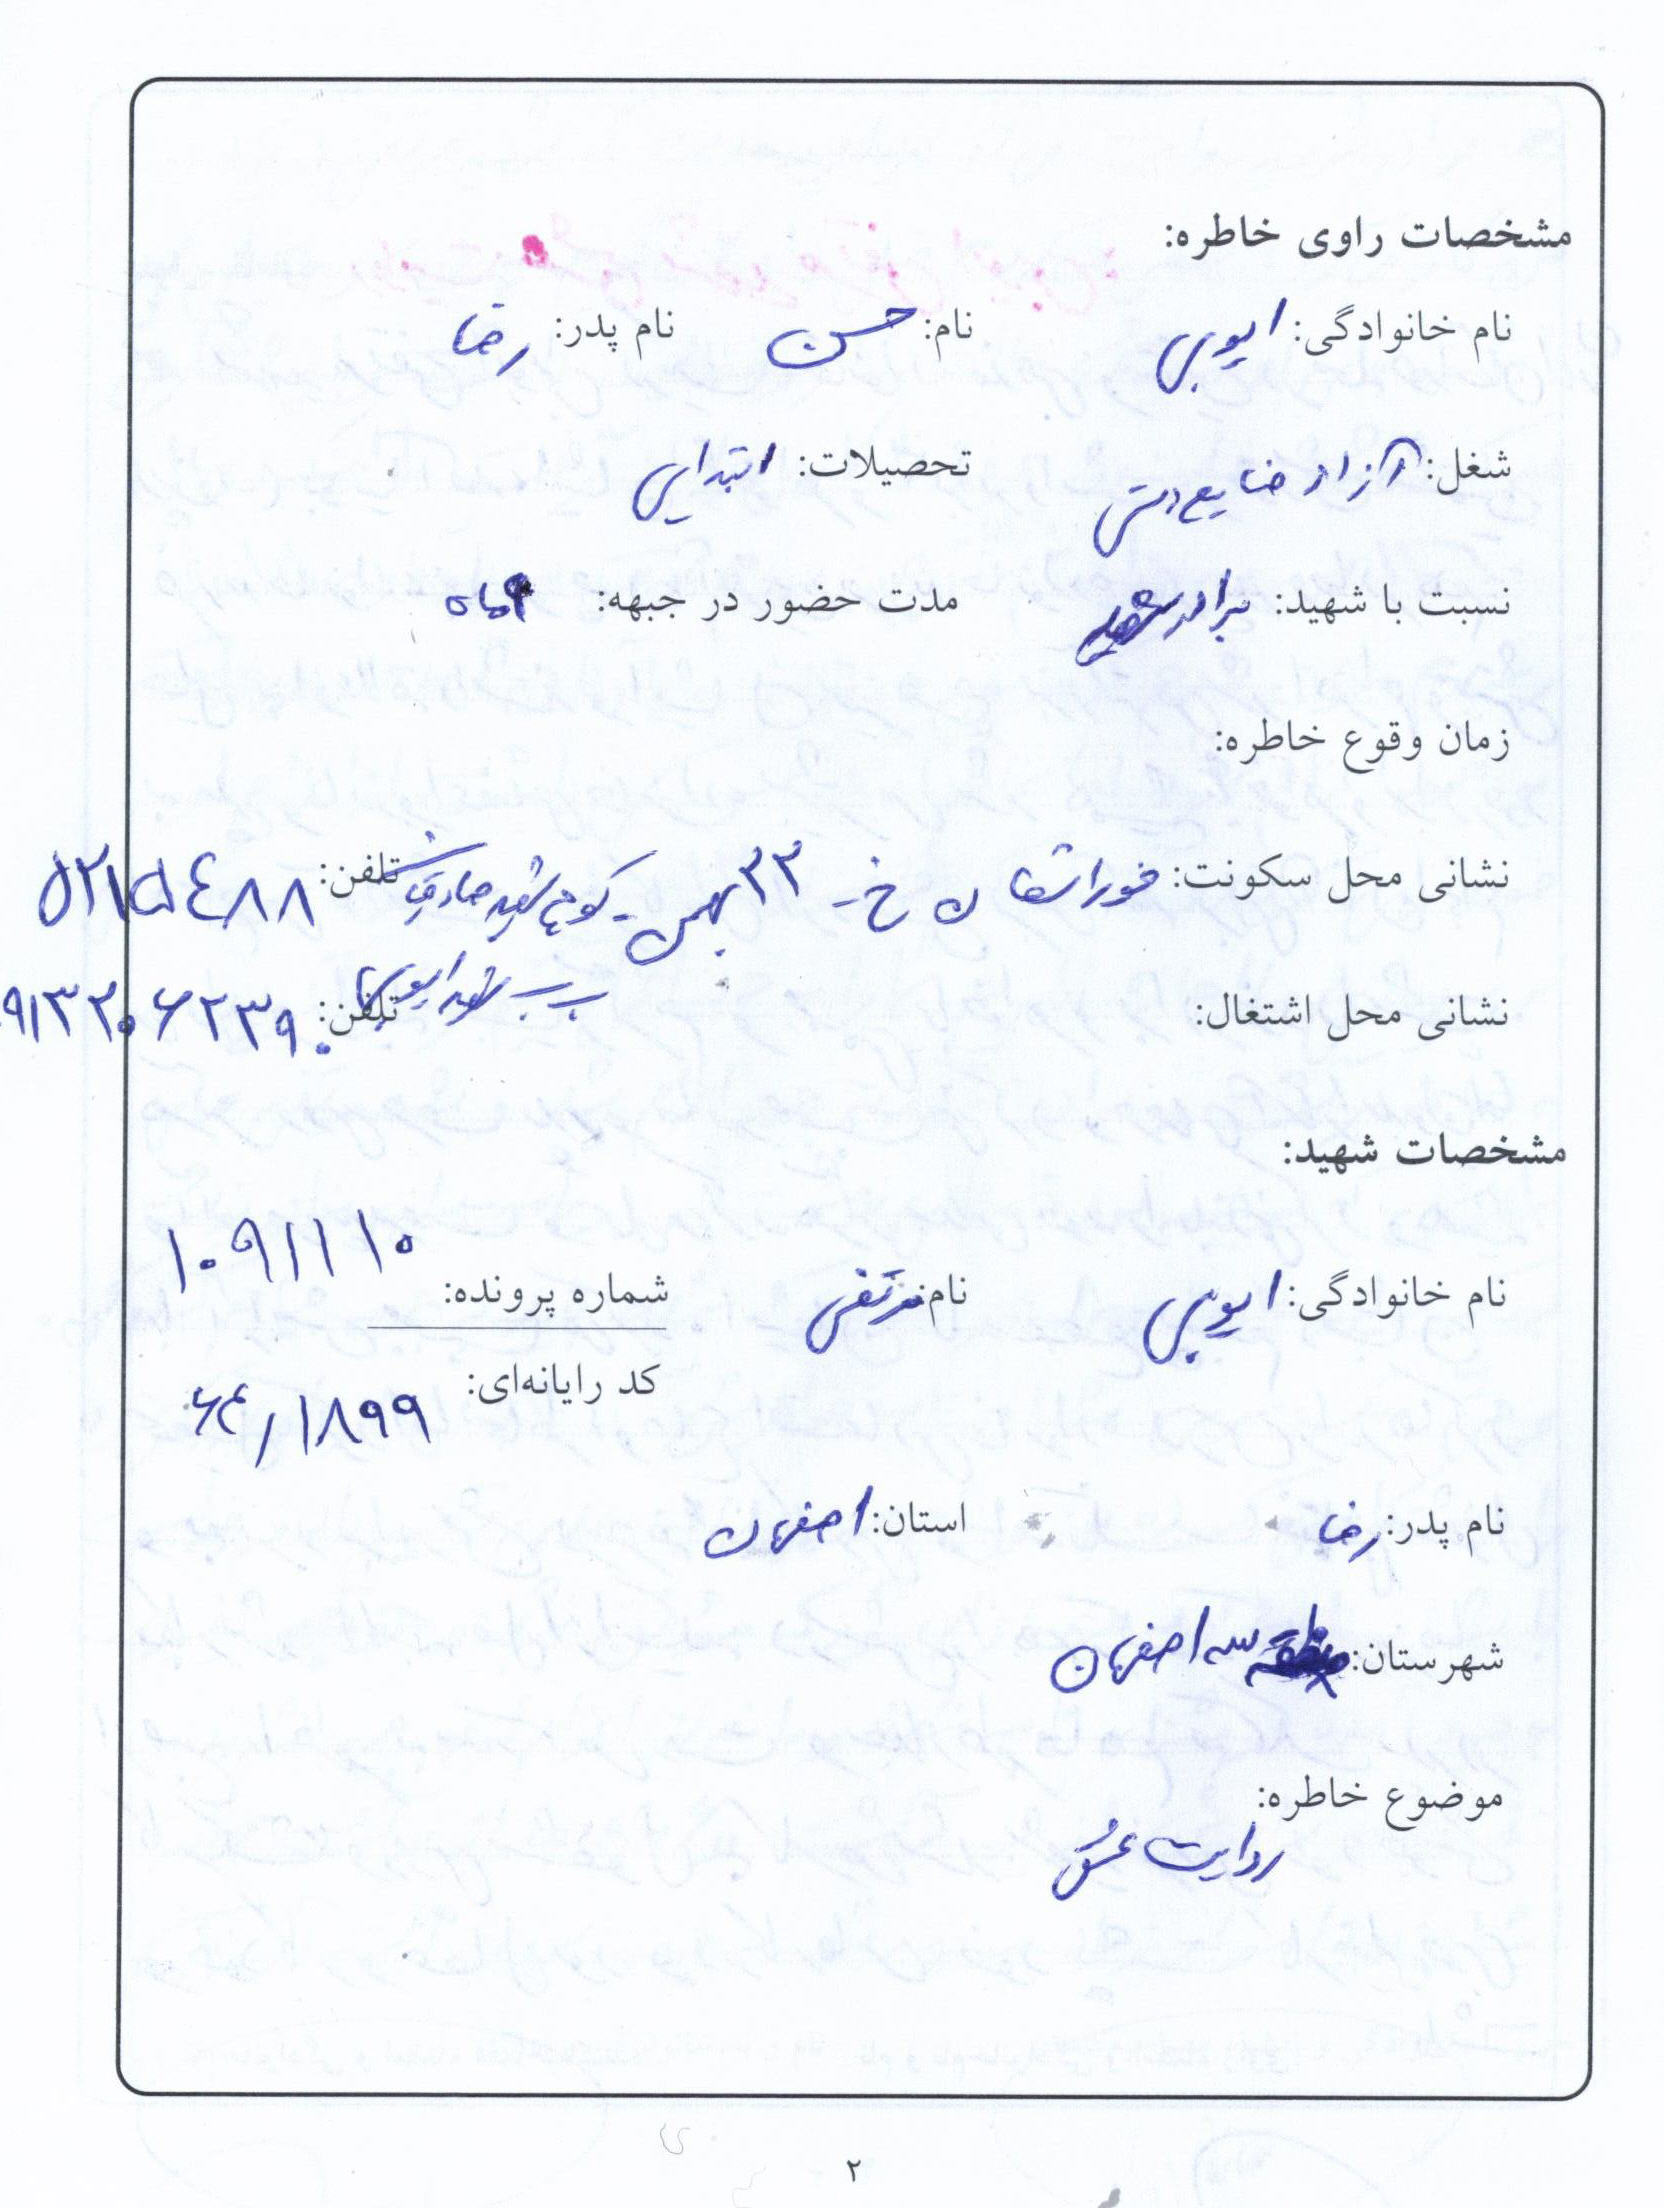 مشخصات راوی خاطره:
نام خانوادگی: ایوبی نام: حسن نام پدر: رضا
شغل: آزاد صنایع دستی تحصیلات: ابتدایی
نسبت با شهید: برادر شهید مدت حضور در جبهه: ماه
زمان وقوع خاطره:
نشانی محل سکونت: خوراسگان خ - ۲۲ بهمن - کوچه شهید صادقی تلفن: ۵۲۱۵۴۸۸
بن بست شهید ایوبی
نشانی محل اشتغال: تلفن: ۹۱۳۲۰۶۲۳۹۰
مشخصات شهید:
نام خانوادگی: ایوبی نام: مرتضی شماره پرونده: ۱۰۹۱۱۱۰
کد رایانه‌ای: ۶۴/۱۸۹۹
نام پدر: رضا استان: اصفهان
شهرستان: منطقه سه اصفهان
موضوع خاطره:
روایت عشق
۲